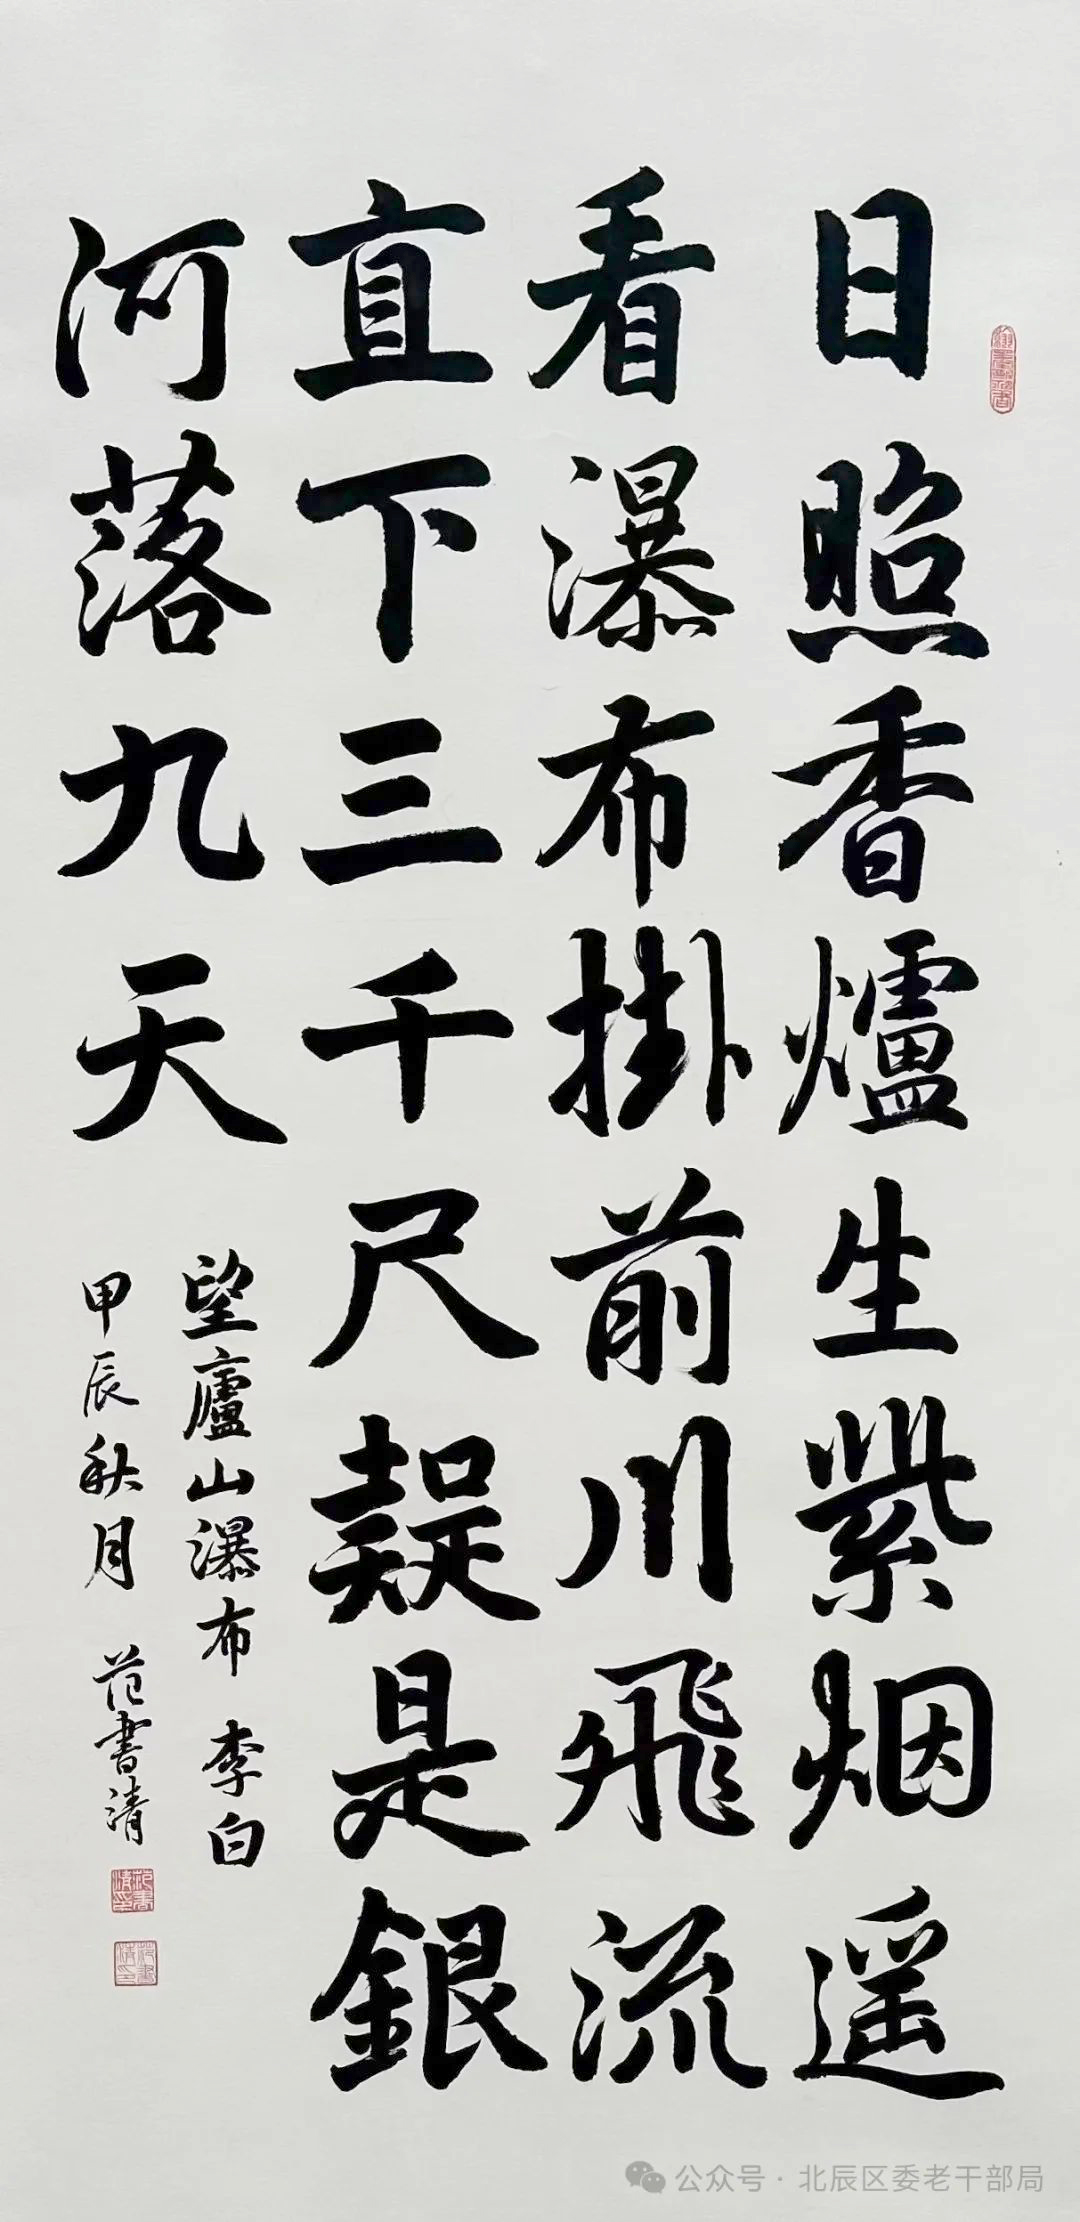 日照香爐生紫烟遥
看瀑布掛前川飛流
直下三千尺疑是銀
河落九天
望廬山瀑布 李白
甲辰秋月 范書清
范書清印
公众号·北辰区委老干部局